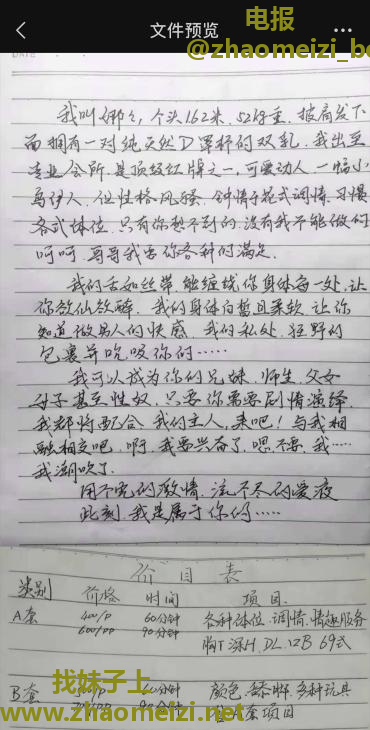 文件预览
电报
@zhaomeizi_bo
DATE
我叫娜娜,个头162米,52公斤重,披肩发下
面拥有一对纯天然D罩杯的双乳,我出至
专业会所,是顶级红牌之一,可爱动人,一幅小
鸟伊人,但性格风骚,钟情于花式调情,习惯
各式体位,只有你想不到的,没有我不能做的
呵呵,哥哥我要你各种的满足.
我的舌如丝带,能缠绕你身体每一处,让
你欲仙欲醉,我的身体白皙且柔软,让你
知道做男人的快感,我的私处,狂野的
包裹并吮吸你的……
我可以成为你的兄妹,师生,父女
母子甚至性奴,只要你需要剧情演绎,
我都将配合,我的主人,来吧!与我相
融相交吧,啊,我要兴奋了,嗯不要,我…
我潮吹了.
用不完的激情,流不尽的爱夜
此刻,我是属于你的……
价目表
类别 价格 时间 项目.
A套 400/P 60分钟 各种体位,调情,情趣服务
600/PP 90分钟 胸T 深H.DL.口B 69式
B套 60分钟 颜色,多种玩具
90分钟 A套项目
找妹子上
www.zhaomeizi.net